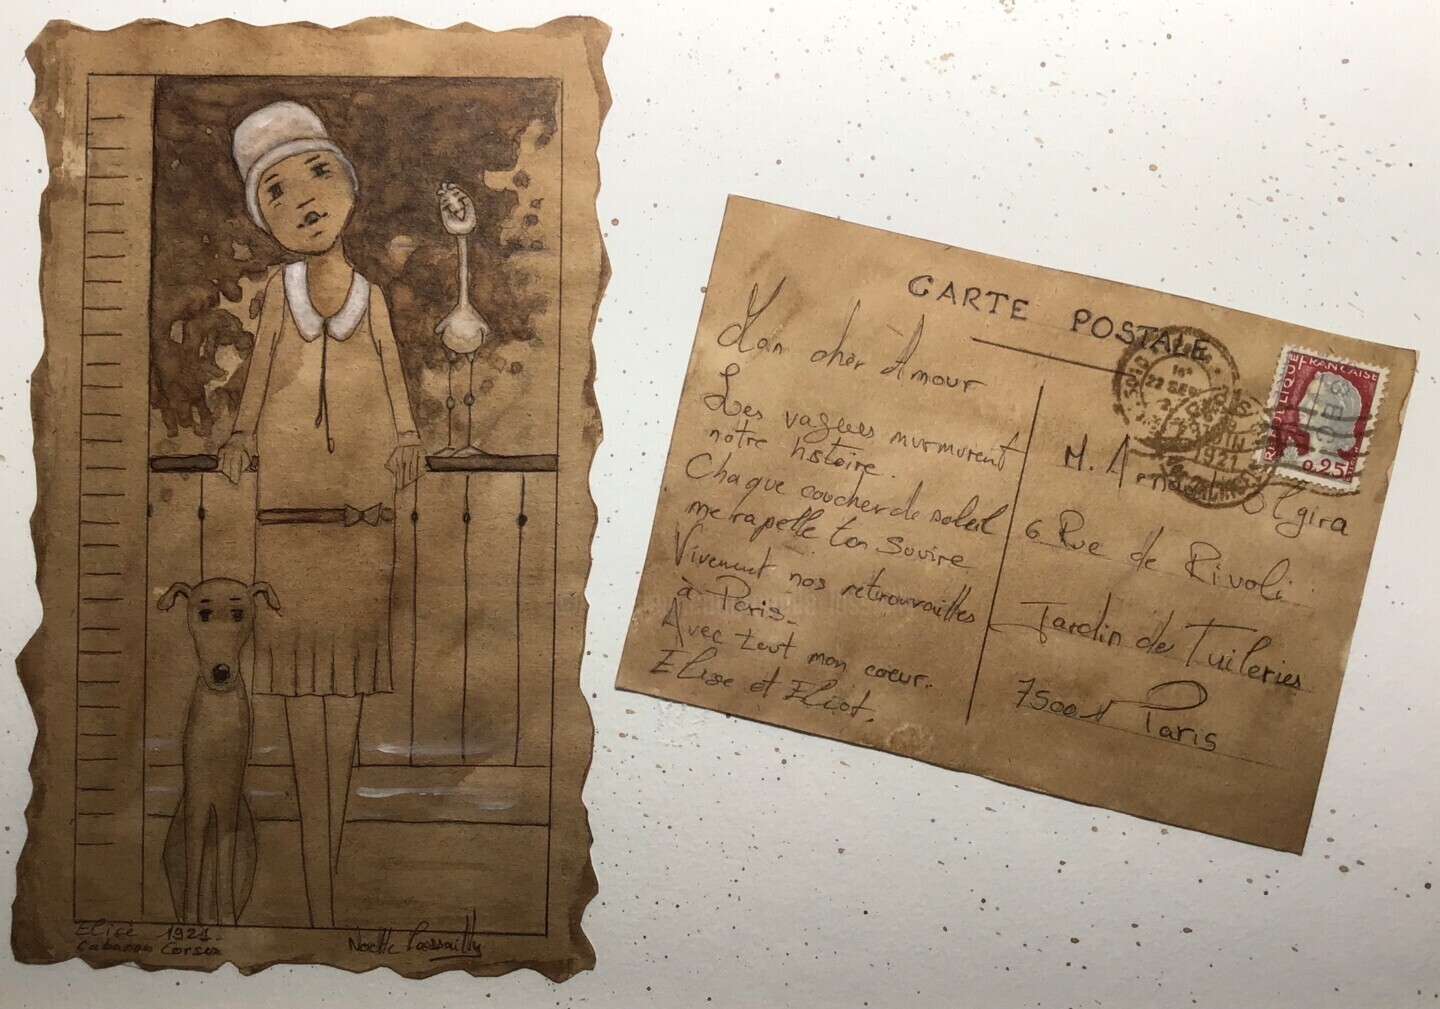 Elise 1921
Cabanon Corse
Noëlle
CARTE POSTALE
Mon cher Amour
Les vagues murmurent
notre histoire.
Chaque coucher de soleil
me rapelle ton sourire
Vivement nos retrouvailles
à Paris.
Avec tout mon coeur.
Elise et Eliot.
REPUBLIQUE FRANÇAISE
0,25
22 SEP
1921
M.
6 Rue de Rivoli
Jardin de Tuileries
75001 Paris